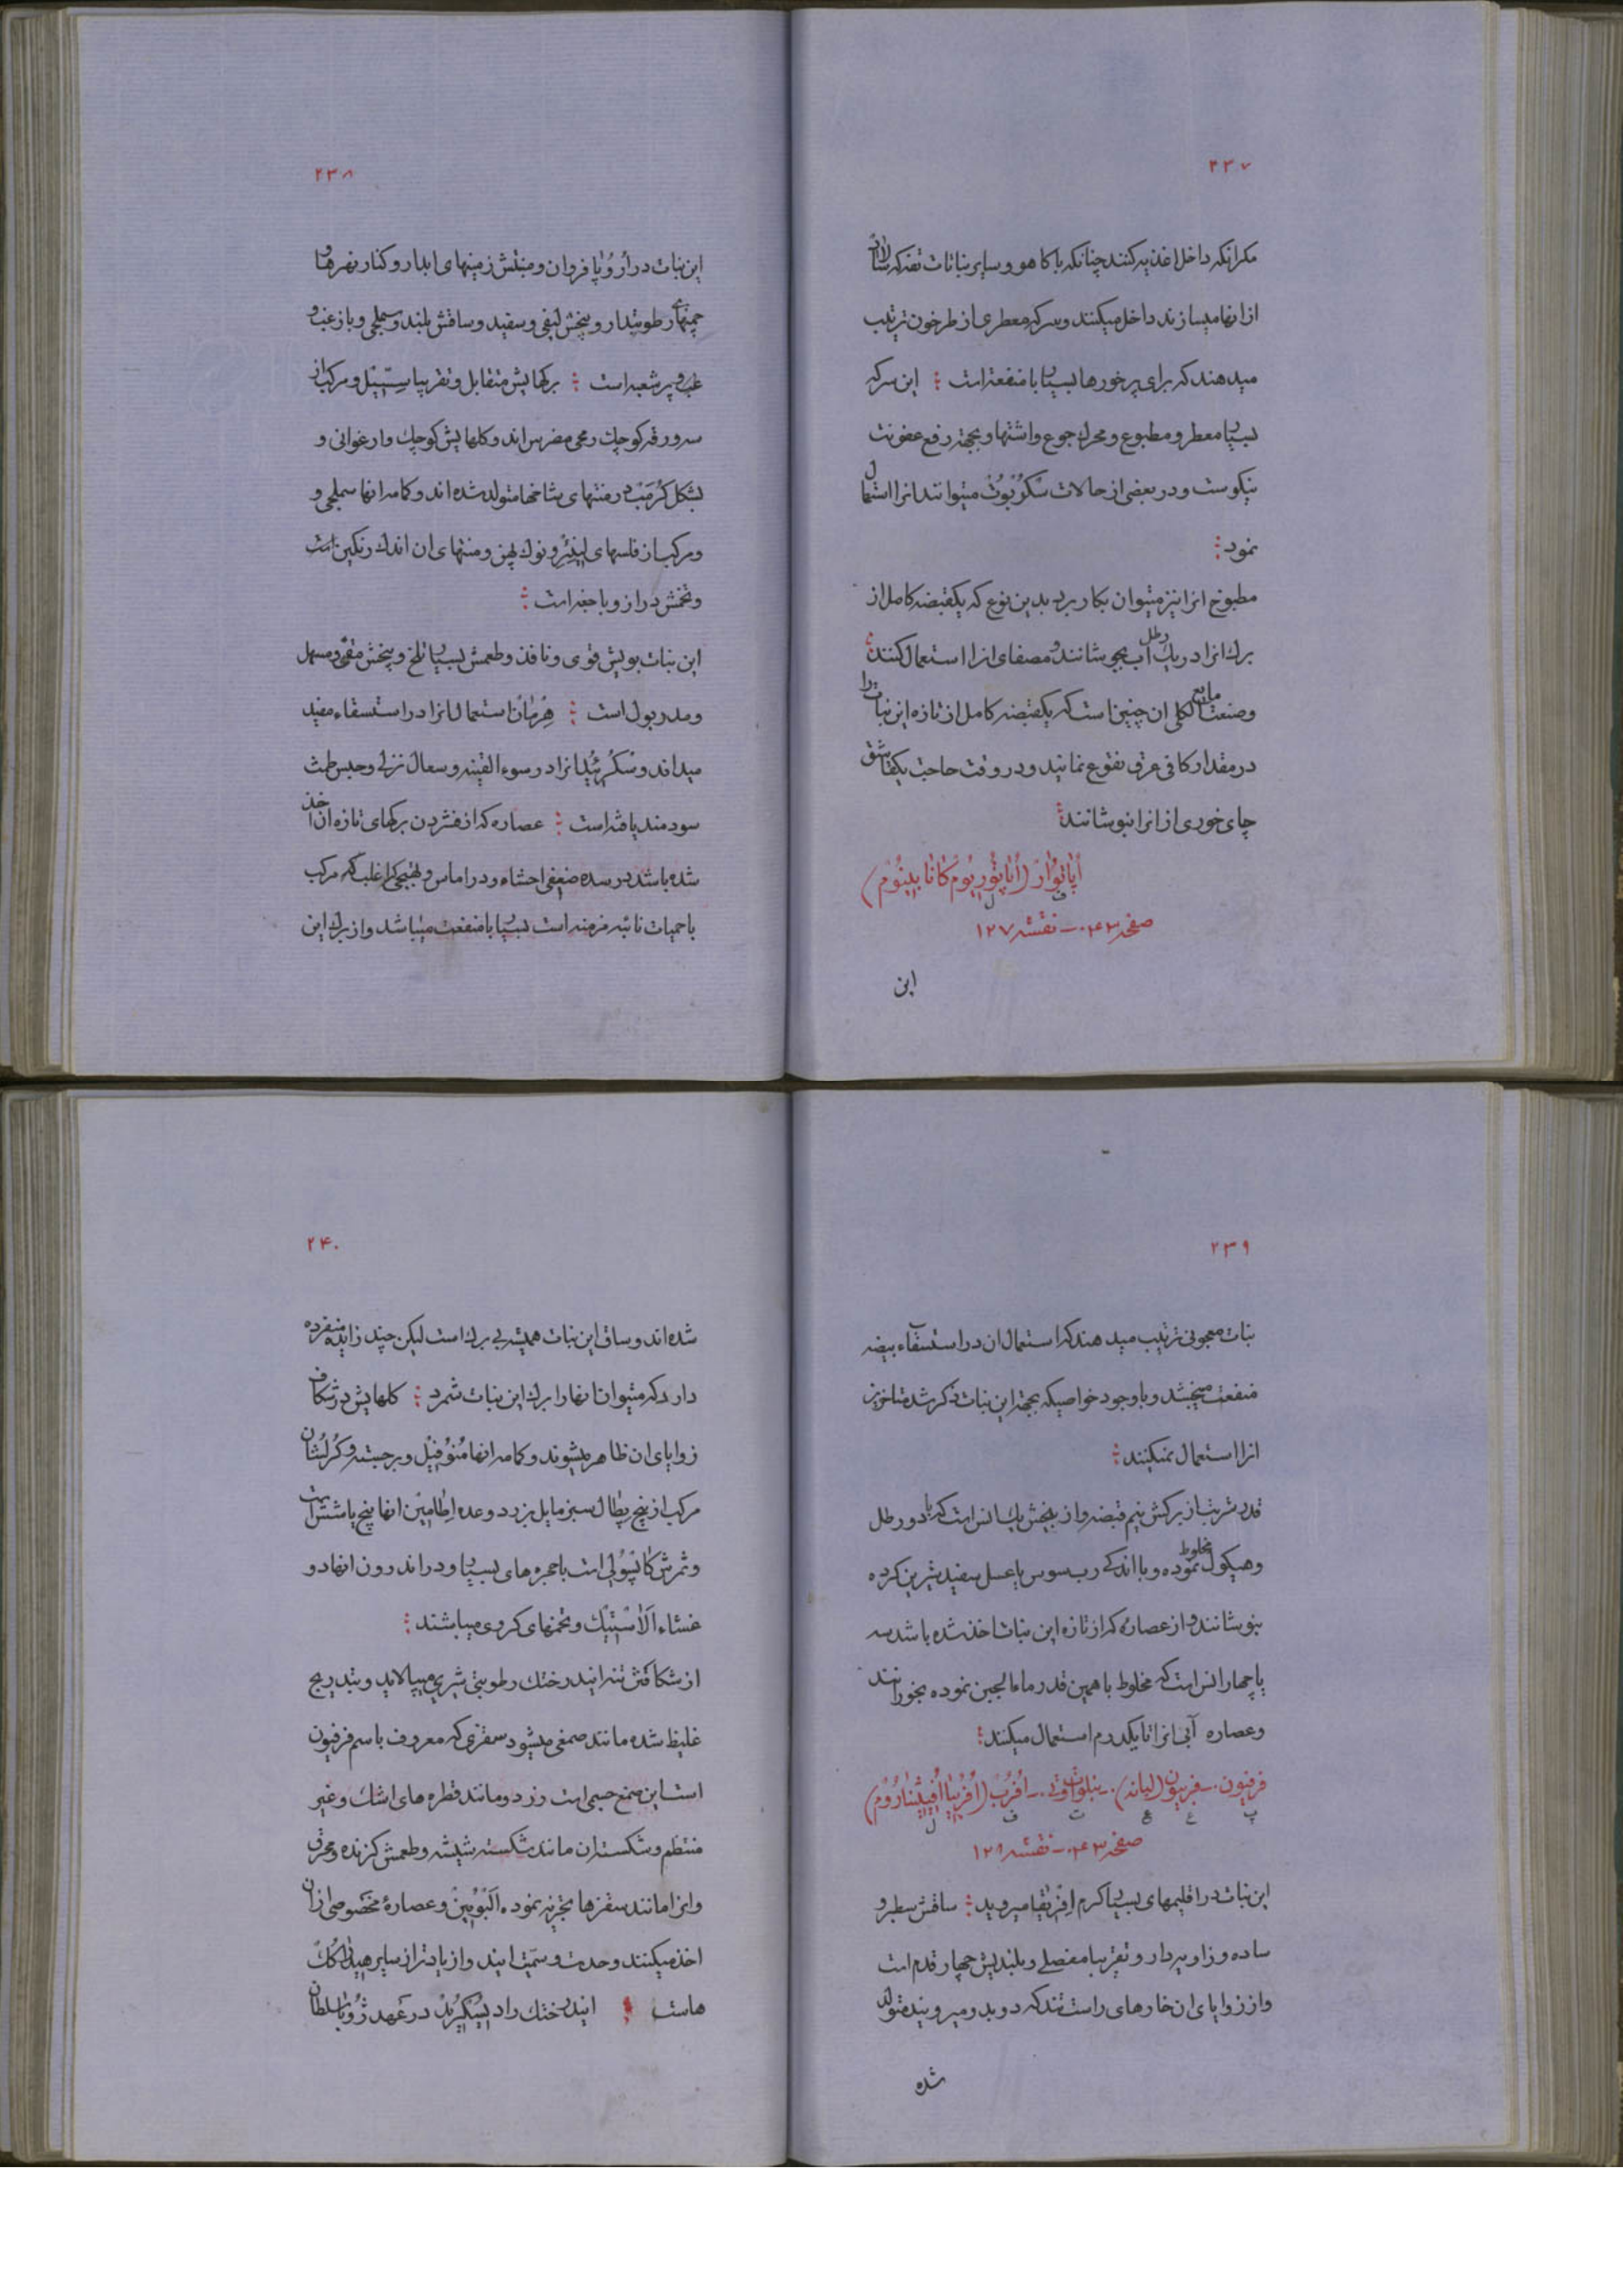 ۲۳۷
مکر انکه داخل اغذیه کنند چنانکه با کاهو و سایر نباتات تفه که سالاد
از انها میسازند داخل میکنند و سرکه معطری از طرخون ترتیب
میدهند که برای پرخورها بسیار با منفعت است : این سرکه
بسیار معطر و مطبوع و محرك جوع و اشتها و بجهة رفع عفونت
نیکوست و در بعضی از حالات سْکُرْبُوتْ میتوانند انرا استعمال
نمود :
مطبوخ انرا نیز میتوان بکار برد بدین نوع که یکقبضه کامل از
برك انرا در یك رطل اب بجوشانند و مصفای انرا استعمال کنند :
وصنعت مایع الکلی ان چنین است که یکقبضه کامل از تازه این نبات را
در مقدار کافی عرق نقوع نمایند و در وقت حاجت یکقاشق
چای خوری از انرا بنوشانند :
اُپاتوُار (اُپاتُوریُوم کانابینُوم)
ف ل
صفحه ۴۳۰ – نقشه ۱۲۷
این
۲۳۸
این نبات در اُرُوپا فروان و منبتش زمینهای ابدار و کنار نهرها و
چمنهای رطوبتدار و بیخش لیفی و سفید و ساقش بلند و سملجی و با زغب و
غب و پر شعبه است : برکهایش متقابل و تقریبا سِسّیل و مرکب از
سه ورقه کوچك رمحی مضرس اند و کلهایش کوچك و ارغوانی و
بشکل کُرَمْب در منتهای شاخها متولد شده اند و کامه انها سملجی و
و مرکب از فلسهای لینِئِر و نوك پهن و منتهای ان اندك رنکین است
و تخمش دراز و با جغه است :
این نبات بویش قوی و نافذ و طعمش بسیار تلخ و بیخش مقیّ و مسهل
و مدر بول است : هِرْمان استعمال انرا در استسقاء مفید
میداند و سْکُرپُلی انرا در سوء القنیه و سعال نزلی و حبس طمث
سودمند یافته است : عصاره که از فشردن برکهای تازه ان اخذ
شده باشد در سده ضعفی احشاء و در اماس و تهبجی که اغلب که مرکب
با حمیات نائبه مزمنه است بسیار با منفعت میباشد و از برك این
۲۳۹
نبات معجونی ترتیب میدهند که استعمال ان در استسقاء بیضه
منفعت میبخشد و با وجود خواصیکه بجهة این نبات ذکر شد متاخرین
انرا استعمال نمیکنند :
قدر شربت از برکش نیم قبضه و از بیخش یك انس است که با دو رطل
وهیکول مخلوط نموده و با اندکی رب سوس یا عسل سفید شیرین کرده
بنوشانند و از عصاره که از تازه این نبات اخذ شده باشد سه
یا چهار انس است که مخلوط با همین قدر ماء الجبن نموده بخورانند
وعصاره آبی انرا تا یکدرم استعمال میکنند :
فرفیون. – فربیون (لبانه). – اُفُرْب (اُفُرْبیا اُفیثینارُوم)
پ ع ع ت ف ل
صفحه ۴۳۰ – نقشه ۱۲۸
این نبات در اقلیمهای بسیار کرم اِفریقا میروید : ساقش سطبر و
ساده و زاویه دار و تقریبا مفصلی و بلندیش چهار قدم است
و از زوایای ان خارهای راست تند که دو بدو میرویند متولد
شده
۲۴۰
شده اند و ساق این نبات همیشه بی برك است لیکن چند زایده منفرده
دارد که میتوان انها را برك این نبات شمرد : کلهایش در شکاف
زوایای ان ظاهر میشوند و کامه انها مُنُوفیل و برجسته و کُرُلشان
مرکب از پنج پِطال سبز مایل بزرد و عده اِطامین انها پنج یا شش است
و ثمرش کاپْسُولی است با حجره های بسیار و در اندرون انها دو
غشاء اَلاسْتیك و تخمهای کروی میباشند :
از شکافتن تنه ایندرختك رطوبتی شیری میپالاید و بتدریج
غلیظ شده مانند صمغی میشود سقزی که معروف باسم فرفیون
است این صمغ جسمی است زرد و مانند قطره های اشك و غیر
منتظم و شکستن ان مانند شکسته شیشه و طعمش کزنده و محرق
و انرا مانند سقزها تجزیه نموده اَلبُومین و عصارهٔ مخصوصی از ان
اخذ میکنند و حدت و سمّیت ایند و از یادتر از سایر هیدراکُك
هاست : ایندرختك را دیسْکُرید در عهد ژُوبا سلطان